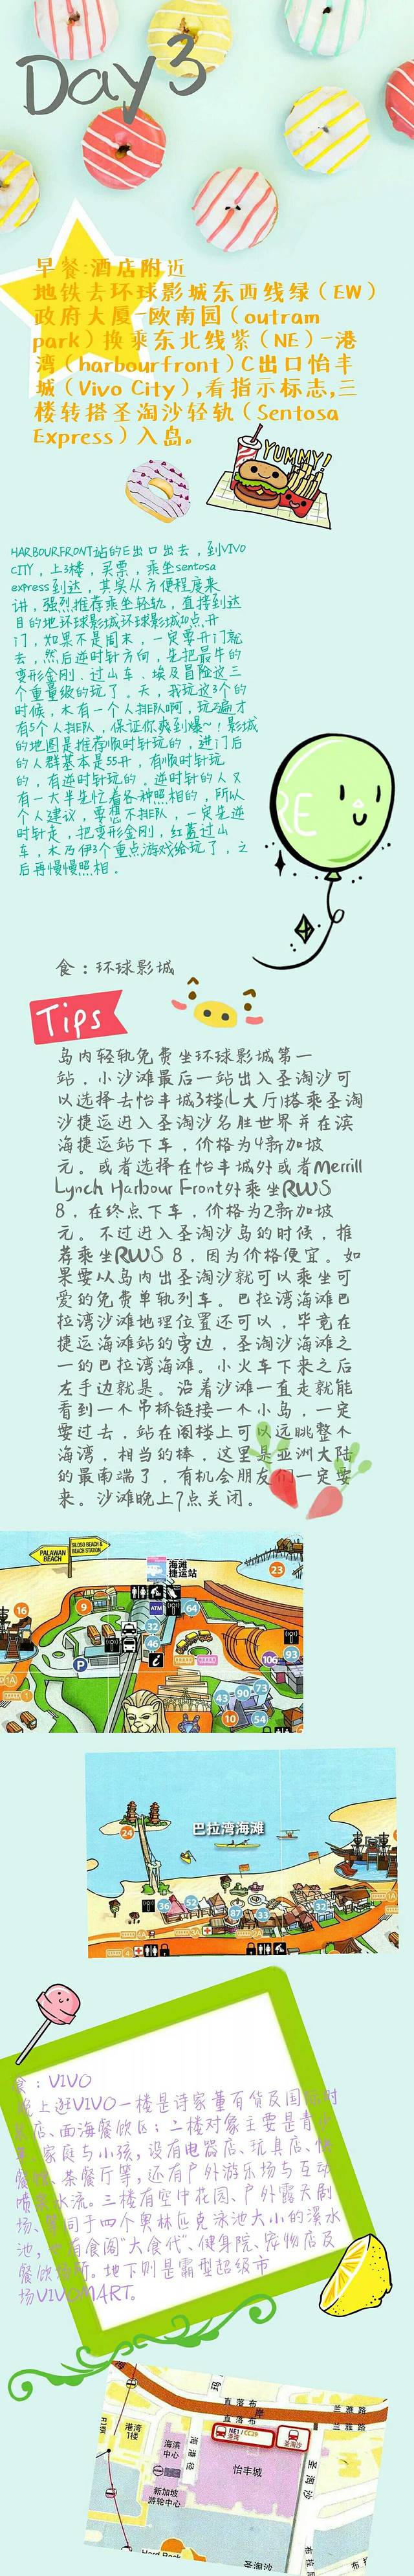 Day 3
早餐:酒店附近
地铁去环球影城东西线绿（EW）
政府大厦-欧南园（outram
park）换乘东北线紫（NE）-港
湾（harbourfront）C出口怡丰
城（Vivo City）,看指示标志,三
楼转搭圣淘沙轻轨（Sentosa
Express）入岛。
YUMMY!
HARBOURFRONT站的E出口出去，到VIVO
CITY，上3楼，买票，乘坐sentosa
express到达，其实从方便程度来
讲，强烈推荐乘坐轻轨，直接到达
目的地环球影城环球影城10点开
门，如果不是周末，一定要开门就
去，然后逆时针方向，先把最牛的
变形金刚．过山车．埃及冒险这三
个重量级的玩了。天，我玩这3个的
时候，木有一个人排队啊，玩2遍才
有5个人排队，保证你爽到爆~！影城
的地图是推荐顺时针玩的，进门后
的人群基本是55开，有顺时针玩
的，有逆时针玩的，逆时针的人又
有一大半先忙着各种照相的，所以
个人建议，要想不排队，一定先逆
时针走，把变形金刚，红蓝过山
车，木乃伊3个重点游戏给玩了，之
后再慢慢照相。
RE
食：环球影城
Tips
岛内轻轨免费坐环球影城第一
站，小沙滩最后一站出入圣淘沙可
以选择去怡丰城3楼(L大厅)搭乘圣淘
沙捷运进入圣淘沙名胜世界并在滨
海捷运站下车，价格为4新加坡
元。或者选择在怡丰城外或者Merrill
Lynch Harbour Front外乘坐RWS
8，在终点下车，价格为2新加坡
元。不过进入圣淘沙岛的时候，推
荐乘坐RWS 8，因为价格便宜。如
果要从岛内出圣淘沙就可以乘坐可
爱的免费单轨列车。巴拉湾海滩巴
拉湾沙滩地理位置还可以，毕竟在
捷运海滩站的旁边，圣淘沙海滩之
一的巴拉湾海滩。小火车下来之后
左手边就是。沿着沙滩一直走就能
看到一个吊桥链接一个小岛，一定
要过去，站在阁楼上可以远眺整个
海湾，相当的棒，这里是亚洲大陆
的最南端了，有机会朋友们一定要
来。沙滩晚上7点关闭。
PALAWAN
BEACH
SILOSO BEACH &
BEACH STATION
海滩
捷运站
23
16
9
ATM
64
32
46
P
106
93
43
90
73
10
54
1A
1
24
巴拉湾海滩
36
52
87
33
32
1A
4
食：VIVO
晚上逛VIVO一楼是诗家董百货及国际时
装店、面海餐饮区；二楼对象主要是青少
年、家庭与小孩，设有电器店、玩具店、快
餐店、茶餐厅等，还有户外游乐场与互动
喷泉水流。三楼有空中花园、户外露天剧
场、等同于四个奥林匹克泳池大小的溪水
池，也有食阁“大食代”、健身院、宠物店及
餐饮场所。地下则是霸型超级市
场VIVOMART。
直落布
直落布
兰雅路
兰雅路
港湾
1楼
海滨
中心
港湾径
NE1/CC29
港湾
圣淘沙
怡丰城
圣淘沙
新加坡
游轮中心
Hard Rock